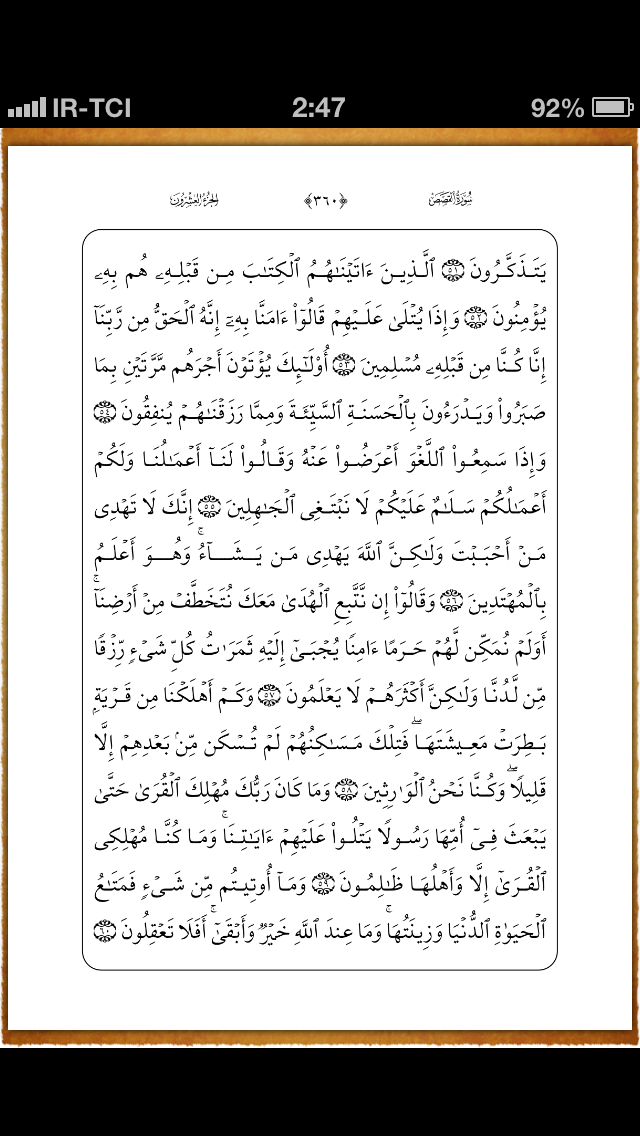 IR-TCI 2:47 92%
سُورَةُ القَصَصِ ﴿٣٦٠﴾ الجُزءُ العِشرُونَ
يَتَذَكَّرُونَ ٥١ ٱلَّذِينَ ءَاتَيۡنَٰهُمُ ٱلۡكِتَٰبَ مِن قَبۡلِهِۦ هُم بِهِۦ
يُؤۡمِنُونَ ٥٢ وَإِذَا يُتۡلَىٰ عَلَيۡهِمۡ قَالُوٓاْ ءَامَنَّا بِهِۦٓ إِنَّهُ ٱلۡحَقُّ مِن رَّبِّنَآ
إِنَّا كُنَّا مِن قَبۡلِهِۦ مُسۡلِمِينَ ٥٣ أُوْلَٰٓئِكَ يُؤۡتَوۡنَ أَجۡرَهُم مَّرَّتَيۡنِ بِمَا
صَبَرُواْ وَيَدۡرَءُونَ بِٱلۡحَسَنَةِ ٱلسَّيِّئَةَ وَمِمَّا رَزَقۡنَٰهُمۡ يُنفِقُونَ ٥٤
وَإِذَا سَمِعُواْ ٱللَّغۡوَ أَعۡرَضُواْ عَنۡهُ وَقَالُواْ لَنَآ أَعۡمَٰلُنَا وَلَكُمۡ
أَعۡمَٰلُكُمۡ سَلَٰمٌ عَلَيۡكُمۡ لَا نَبۡتَغِي ٱلۡجَٰهِلِينَ ٥٥ إِنَّكَ لَا تَهۡدِي
مَنۡ أَحۡبَبۡتَ وَلَٰكِنَّ ٱللَّهَ يَهۡدِي مَن يَشَآءُۚ وَهُوَ أَعۡلَمُ
بِٱلۡمُهۡتَدِينَ ٥٦ وَقَالُوٓاْ إِن نَّتَّبِعِ ٱلۡهُدَىٰ مَعَكَ نُتَخَطَّفۡ مِنۡ أَرۡضِنَآۚ
أَوَلَمۡ نُمَكِّن لَّهُمۡ حَرَمًا ءَامِنٗا يُجۡبَىٰٓ إِلَيۡهِ ثَمَرَٰتُ كُلِّ شَيۡءٖ رِّزۡقٗا
مِّن لَّدُنَّا وَلَٰكِنَّ أَكۡثَرَهُمۡ لَا يَعۡلَمُونَ ٥٧ وَكَمۡ أَهۡلَكۡنَا مِن قَرۡيَةِۭ
بَطِرَتۡ مَعِيشَتَهَاۖ فَتِلۡكَ مَسَٰكِنُهُمۡ لَمۡ تُسۡكَن مِّنۢ بَعۡدِهِمۡ إِلَّا
قَلِيلٗاۖ وَكُنَّا نَحۡنُ ٱلۡوَٰرِثِينَ ٥٨ وَمَا كَانَ رَبُّكَ مُهۡلِكَ ٱلۡقُرَىٰ حَتَّىٰ
يَبۡعَثَ فِيٓ أُمِّهَا رَسُولٗا يَتۡلُواْ عَلَيۡهِمۡ ءَايَٰتِنَاۚ وَمَا كُنَّا مُهۡلِكِي
ٱلۡقُرَىٰٓ إِلَّا وَأَهۡلُهَا ظَٰلِمُونَ ٥٩ وَمَآ أُوتِيتُم مِّن شَيۡءٖ فَمَتَٰعُ
ٱلۡحَيَوٰةِ ٱلدُّنۡيَا وَزِينَتُهَاۚ وَمَا عِندَ ٱللَّهِ خَيۡرٞ وَأَبۡقَىٰٓۚ أَفَلَا تَعۡقِلُونَ ٦٠